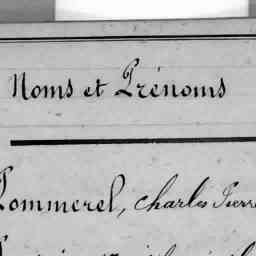 Noms et Prénoms
Pommerel, Charles Pierre